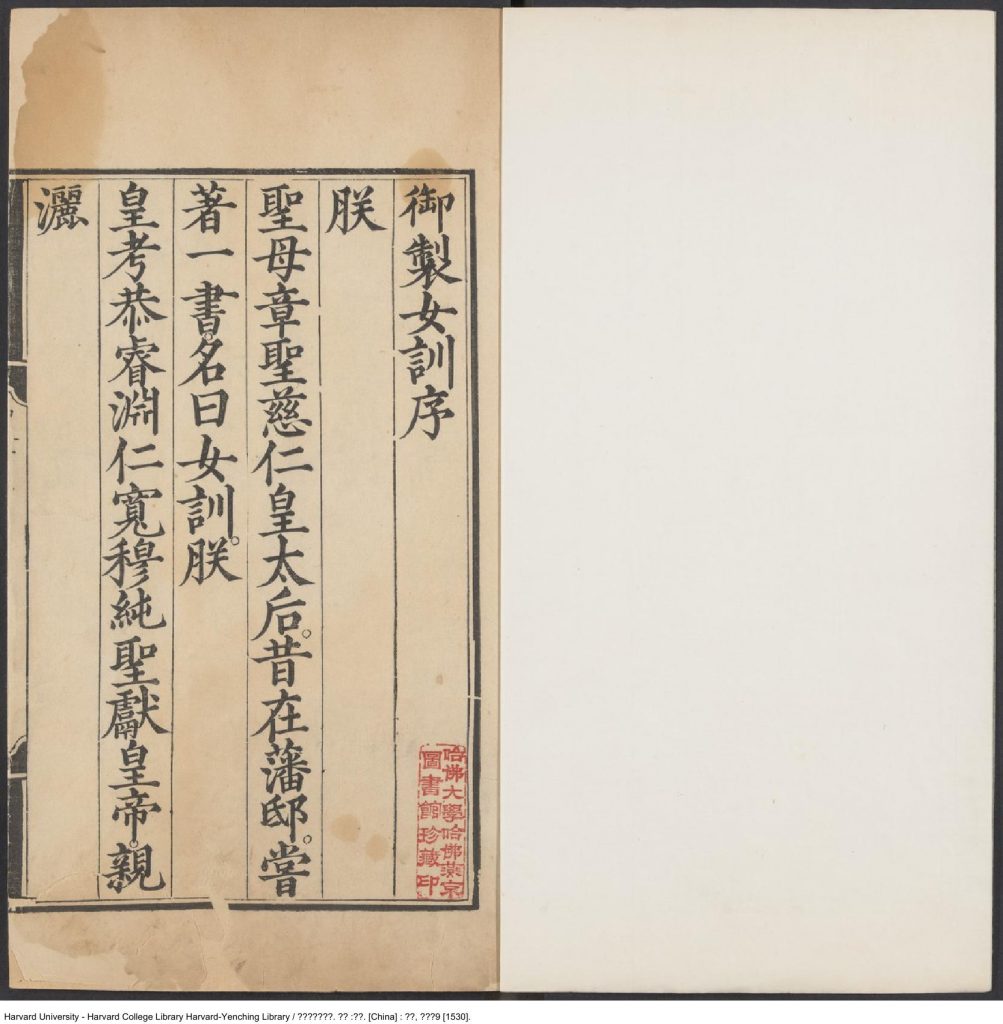 御製女訓序
朕
聖母章聖慈仁皇太后。昔在藩邸。嘗
著一書。名曰女訓。朕
皇考恭睿淵仁寬穆純聖獻皇帝。親
灑
哈佛大學哈佛燕京
圖書館珍藏印
Harvard University - Harvard College Library Harvard-Yenching Library / ???????. ?? :??. [China] : ??, ???9 [1530].